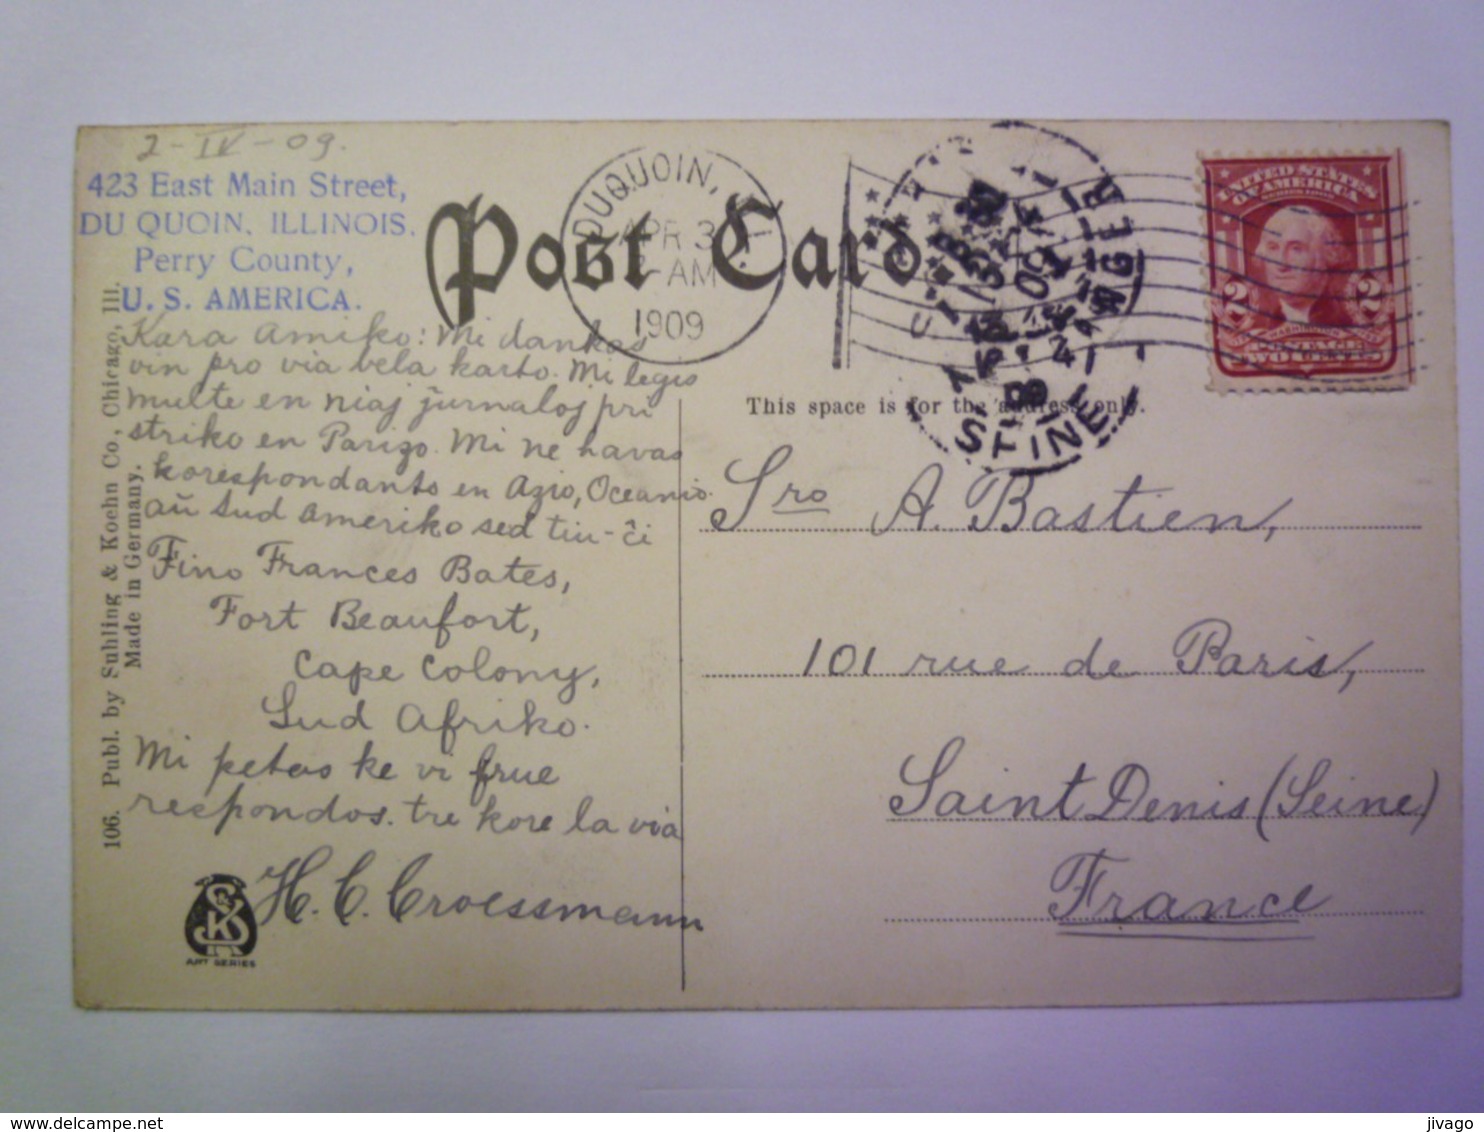 2-IV-09.
423 East Main Street,
DU QUOIN, ILLINOIS.
Perry County,
U. S. AMERICA.
Post Card
DUQUOIN,
APR 3
AM
1909
UNITED STATES
OF AMERICA
2 2
POSTAGE
TWO CENTS
This space is for the address only.
Kara Amiko: Mi dankas
vin pro via bela karto. Mi legis
multe en niaj ĵurnaloj pri
striko en Parizo. Mi ne havas
korespondanto en Azio, Oceanio
aŭ Sud Ameriko sed tiu-ĉi
Fino Frances Bates,
Fort Beaufort,
Cape Colony,
Sud Afriko.
Mi petas ke vi frue
respondos. tre kore la via
H. C. Croessmann
Sro A. Bastien,
101 rue de Paris,
Saint Denis (Seine)
France
106. Publ. by Suhling & Koehn Co., Chicago, Ill.
Made in Germany.
SK
ART SERIES
jivago
delcampe.net